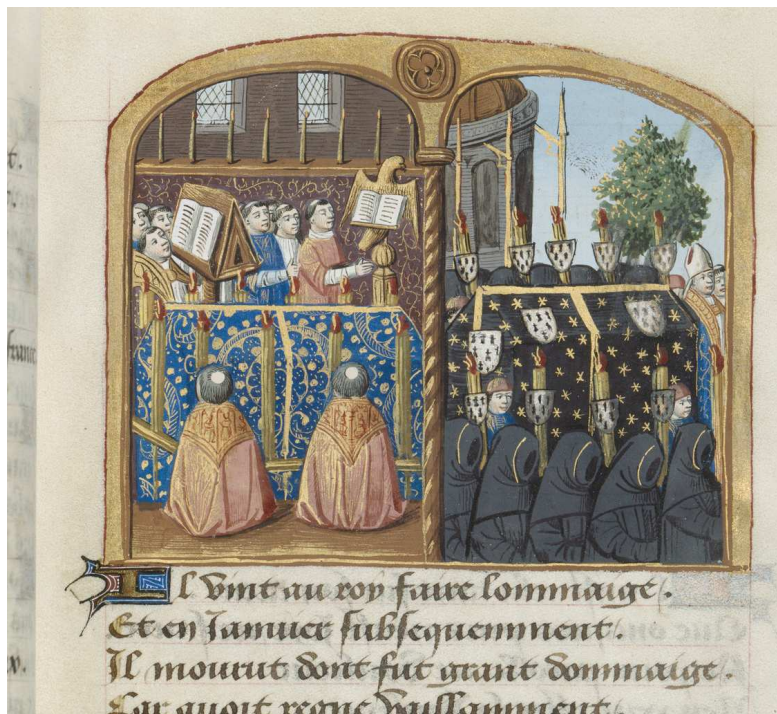 Il vint au roy faire lommaige.
Et en Januier subsequemment.
Il mourut dont fut grant dommaige.
Car auoit regne vaillamment